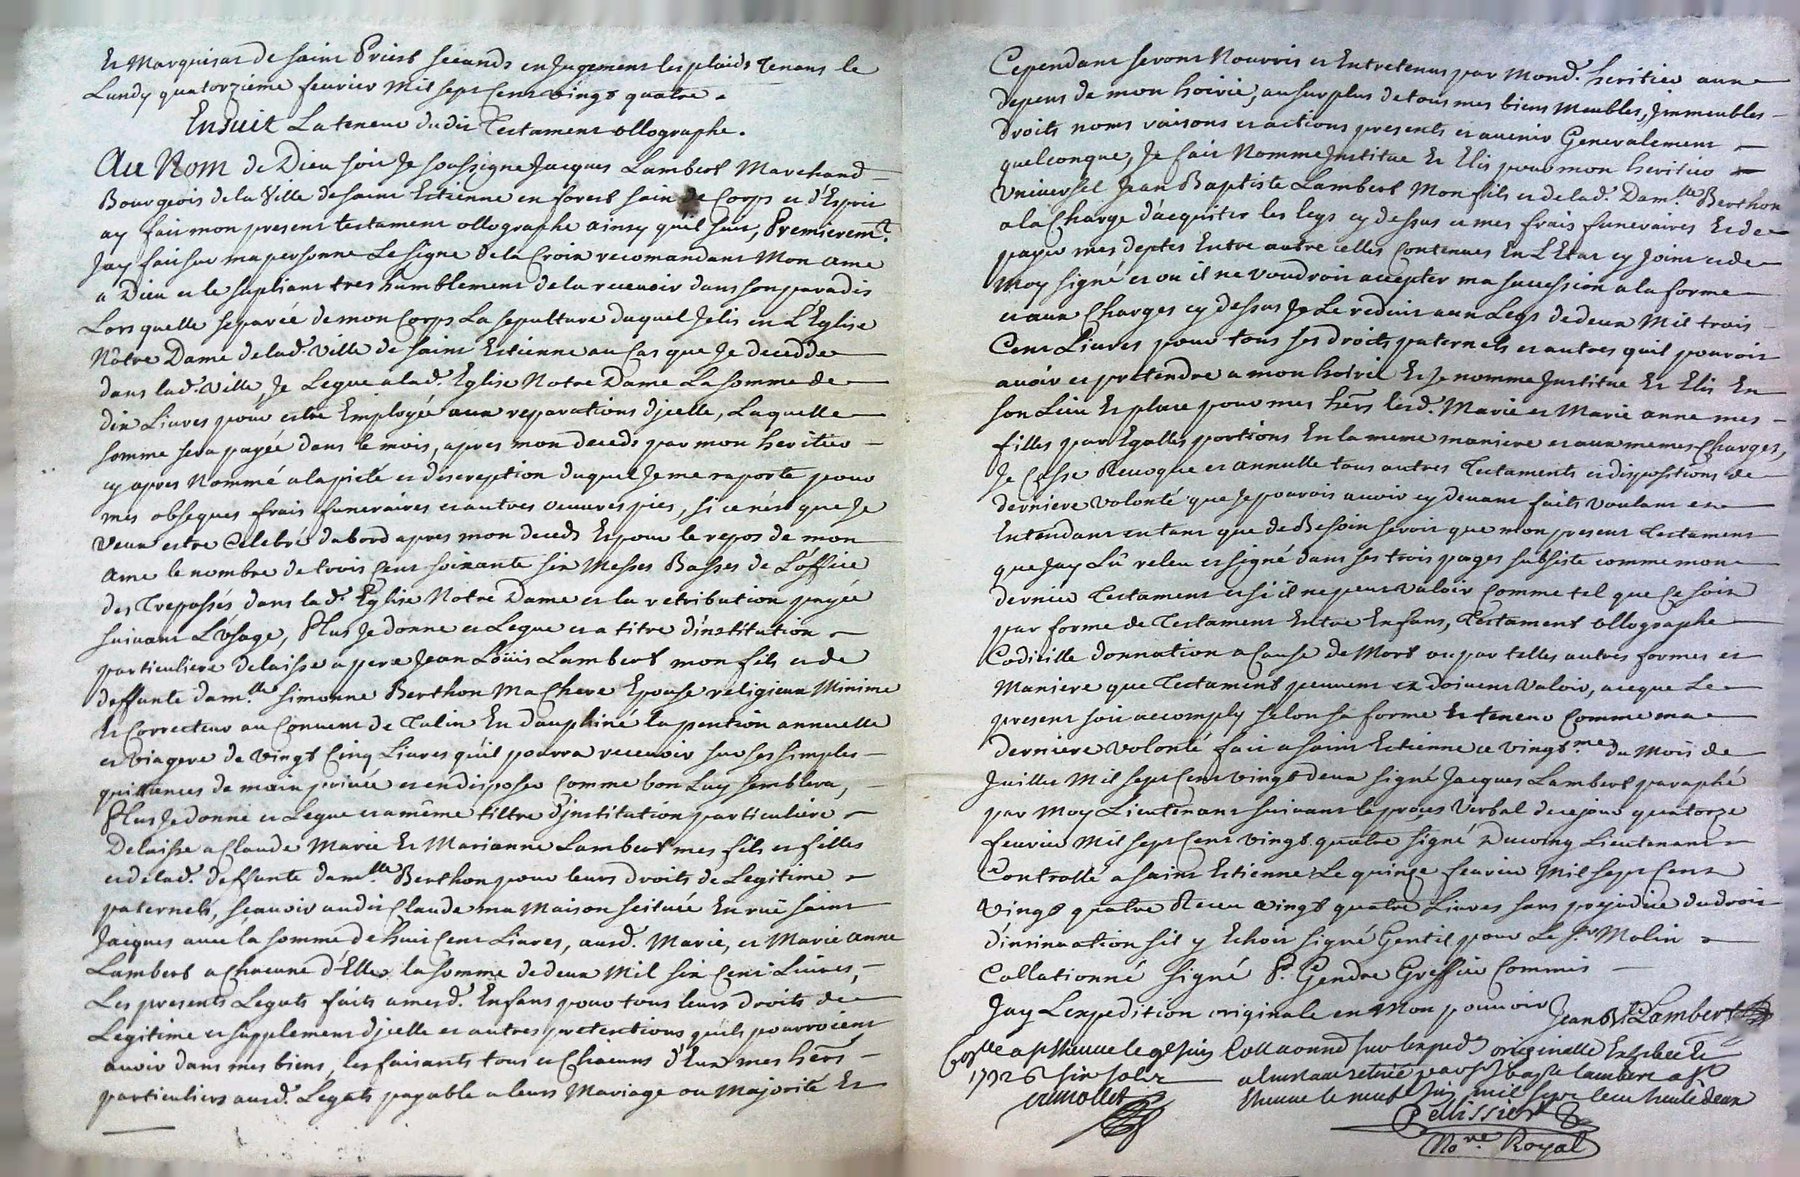 Et Marquisat de saint Priest seeants en Jugement les plaids Tenans le
Lundy quatorzième feurier Mil sept Cens vingt quatre.
Ensuit La teneur dudit Testament ollographe.
Au Nom de Dieu soit Je soussigne Jacques Lambert Marchand
Bourgeois de la Ville de saint Estienne en forest sain de Corps et d'Esprit
ay fait mon present testament ollographe ainsy quil suit, Premierem.t
Jay fait sur ma personne Le signe de la Croix recomandant Mon ame
a Dieu et le supliant tres humblement de la receuoir dans son paradis
Lors quelle separée de mon Corps La sepulture duquel Jelis en L'Église
Nôtre Dame delad. ville de saint Estienne au Cas que Je decedde
dans lad. ville, Je Legue a lad. Eglise Notre Dame La somme de
dix Liures pour estre Employée aux repparations djcelle, Laquelle
somme sera payée dans le mois, apres mon deceds par mon heritier
cy apres Nommé a la pieté et discreption duquel Je me raporte pour
mes obseques frais funeraires et autres oeuures pies, si ce nest que Je
veux estre Celebré dabord apres mon deceds Et pour le repos de mon
ame le nombre de trois Cens soixante six Messes Basses de L'office
des Trepassés dans lad. Eglise Notre Dame et la retribution payée
suiuant L'Vsage, Plus Je donne et Legue et a titre d'institution
particuliere delaisse a pere Jean Loüis Lambert mon fils et de
deffunte dam.lle simonne Berthon Ma Chere Epouse religieux Minime
Et Correcteur au Conuent de Tulin En dauphiné La pention annuelle
et viagere de vingt Cinq Liures quil pourra receuoir sur ses simples
quittances de main priuée et en disposer Comme bon Luy semblera,
Plus Je donne et Legue et a même tiltre d'jnstitution particuliere
Delaisse a Claude Marie Et Marianne Lambert mes fils et filles
et delad. deffunte dam.lle Berthon pour leurs droits de Legitime
paternels, scauoir audit Claude ma Maison scituée En rüe saint
Jacques auec la somme de huit Cens Liures, ausd. Marie, et Marie Anne
Lambert a Chacune d'Elles la somme de deux Mil six Cens Liures,
Les presents Legats faits a mesd. Enfans pour tous leurs droits de
Legitime et supplement djcelle et autres pretentions quils pourroient
auoir dans mes biens, les faisants tous et Chacuns d'Eux mes hērs
particuliers ausd. Legats payable a leurs Mariage ou Majorité Et
Cependant seront Nourris et Entretenus par Mond. heritier aux
depens de mon hoirie, au surplus de tous mes biens Meubles, Jmmeubles
droits noms raisons et actions presents et auenir Generalement
quelconque, Je fait Nomme Jnstitue Et Elis pour mon heritier
Vniuersel Jean Baptiste Lambert Mon fils et delad. Dam.lle Berthon
a la Charge d'acquitter les legs cy dessus et mes frais funeraires Et de
payer mes deptes Entre autre celles Contenues En L'Etat cy joint et de
Moy signé et ou il ne voudroit accepter ma succession a la forme
et aux Charges cy dessus Je Le reduit a un Legs de deux Mil trois
Cens Liures pour tous ses droits paternels et autres quil pouroit
auoir et pretendre a mon hoirie Et Je nomme Jnstitue Et Elis En
son Lieu Et place pour mes hērs lesd. Marie et Marie anne mes
filles par Egalles portions En la meme maniere et aux memes Charges,
Je Casse Reuoque et annulle tous autres Testaments et dispositions de
derniere volonté que Je pourois auoir cy deuant faits voulant et
Entendant en tant que de Besoin seroit que mon present Testament
que Jay Lû releu et signé dans ses trois pages subsiste comme mon
dernier Testament et si il ne peut valoir Comme tel que Ce soit
par forme de Testament Entre Enfans, Testament ollographe
Codicille donnation a Cause de Mort ou par telles autres formes et
Maniere que Testament peuuent et doiuent valoir, aceque Le
present soit accomply selon sa forme Et teneur Comme ma
derniere volonté fait a saint Estienne ce vingt.me du Mois de
Juillet Mil sept Cens vingt deux signé Jacques Lambert paraphé
par Moy Lieutenant suiuant le proces Verbal de ce jour quatorze
feurier Mil sept Cens vingt quatre signé Ducoing Lieutenant
Controllé a saint Estienne Le quinze feurier Mil sept Cens
Vingt quatre Receu vingt quatre Liures sans prejudice du droit
d'insinuation sil y Echoit signé Gentil pour Le s.r Molin
Collationné signé P. Gendre Greffier Commis
Jay L'expedition originale en Mon pouuoir Jean B.te Lambert
a st Etienne le 9e Juin Collationné sur lexped.on originalle Exhibée Et
1732 six sols a linstant retirée par s.r Jean bap.te lambert a st
Etienne le neuf Juin mil sept Cent trente deux
Pellissier
No.re Royal